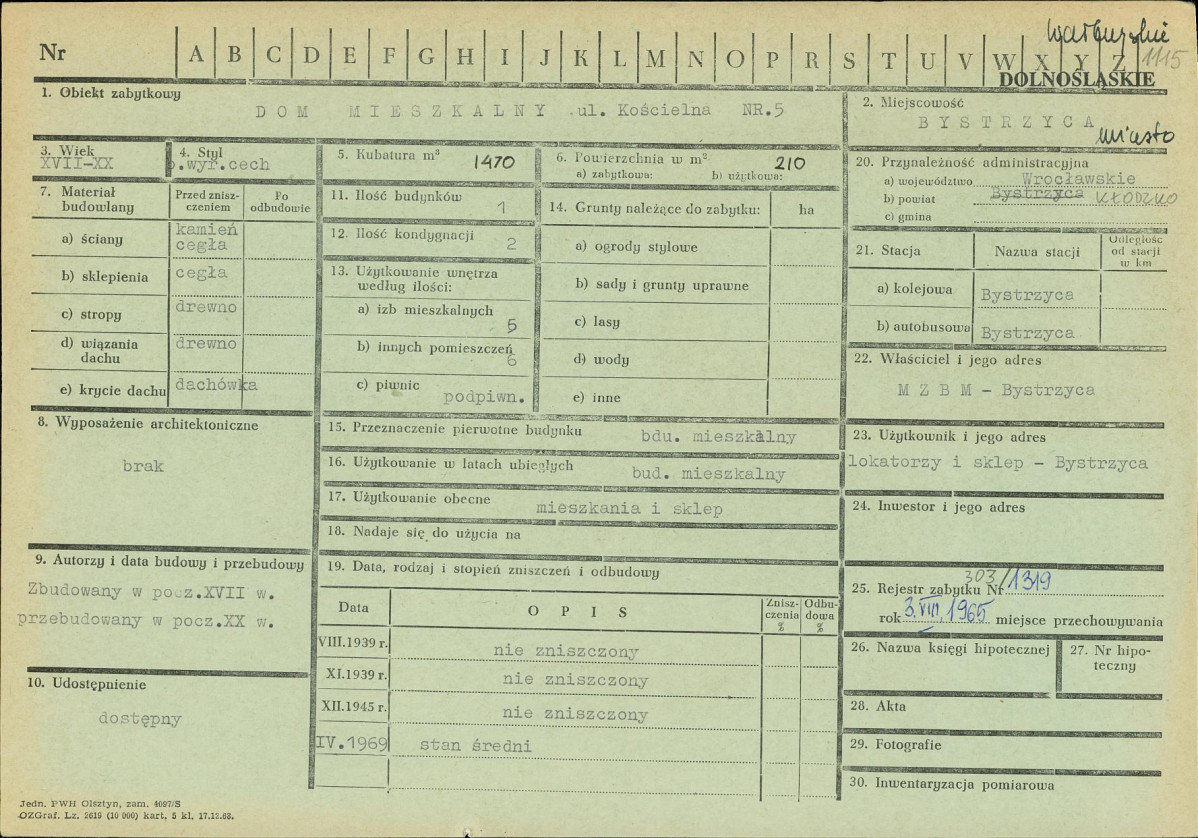 wałbrzyskie
Nr A B C D E F G H I J K L M N O P R S T U V W X Y Z 1115
DOLNOŚLĄSKIE
1. Obiekt zabytkowy
DOM MIESZKALNY ul. Kościelna NR.5
2. Miejscowość
BYSTRZYCA
miasto
3. Wiek
XVII-XX
4. Styl
b.wyr.cech
5. Kubatura m³ 1470
6. Powierzchnia w m² 210
a) zabytkowa: b) użytkowa:
7. Materiał budowlany
Przed zniszczeniem
Po odbudowie
a) ściany kamień
cegła
b) sklepienia cegła
c) stropy drewno
d) wiązania dachu drewno
e) krycie dachu dachówka
8. Wyposażenie architektoniczne
brak
9. Autorzy i data budowy i przebudowy
Zbudowany w pocz.XVII w.
przebudowany w pocz.XX w.
10. Udostępnienie
dostępny
11. Ilość budynków 1
12. Ilość kondygnacji 2
13. Użytkowanie wnętrza
według ilości:
a) izb mieszkalnych 5
b) innych pomieszczeń 6
c) piwnic podpiwn.
14. Grunty należące do zabytku: ha
a) ogrody stylowe
b) sady i grunty uprawne
c) lasy
d) wody
e) inne
15. Przeznaczenie pierwotne budynku bdu. mieszkalny
16. Użytkowanie w latach ubiegłych bud. mieszkalny
17. Użytkowanie obecne mieszkania i sklep
18. Nadaje się do użycia na
19. Data, rodzaj i stopień zniszczeń i odbudowy
Data OPIS Zniszczenia % Odbudowa %
VIII.1939 r. nie zniszczony
XI.1939 r. nie zniszczony
XII.1945 r. nie zniszczony
IV.1969 stan średni
20. Przynależność administracyjna
a) województwo Wrocławskie
b) powiat Bystrzyca KŁODZKO
c) gmina
21. Stacja Nazwa stacji Odległość od stacji w km
a) kolejowa Bystrzyca
b) autobusowa Bystrzyca
22. Właściciel i jego adres
MZBM - Bystrzyca
23. Użytkownik i jego adres
lokatorzy i sklep - Bystrzyca
24. Inwestor i jego adres
25. Rejestr zabytku Nr 303/1319
rok 3.VIII.1965 miejsce przechowywania
26. Nazwa księgi hipotecznej
27. Nr hipoteczny
28. Akta
29. Fotografie
30. Inwentaryzacja pomiarowa
Jedn. PWH Olsztyn, zam. 4097/S
OZGraf. Lz. 2619 (10 000) kart, 5 kl, 17.12.68.